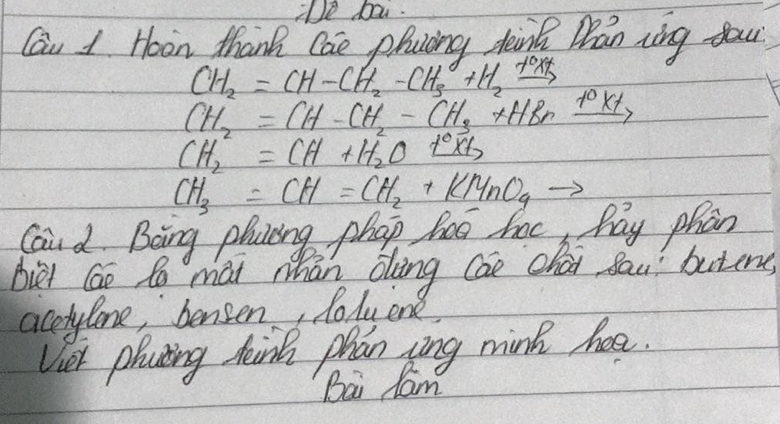 Đề bài.
Câu 1. Hoàn thành các phương trình phản ứng sau:
CH₂ = CH - CH₂ - CH₃ + H₂ t°xt→
CH₂ = CH - CH₂ - CH₃ + HBr t°xt→
CH₂ = CH + H₂O t°xt→
CH₃ = CH = CH₂ + KMnO₄ →
Câu 2. Bằng phương pháp hoá học, hãy phân
biệt các lọ mất nhãn đựng các chất sau: butene,
acetylene, bensen, toluene.
Viết phương trình phản ứng minh hoạ.
Bài làm